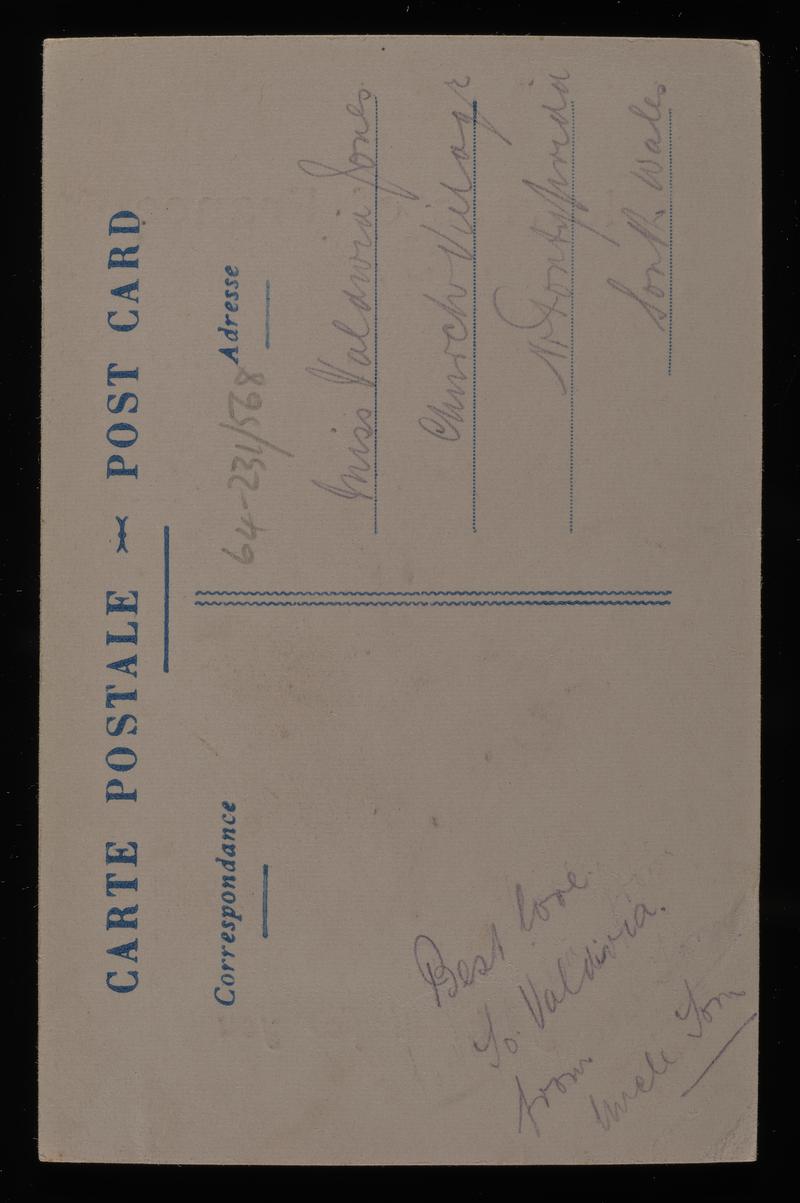 CARTE POSTALE POST CARD
Correspondance
Best love
To Valdivia.
from
Uncle Tom
Adresse
64-231/568
Miss Valdivia Jones
Church Village
Nr Pontypridd
South Wales